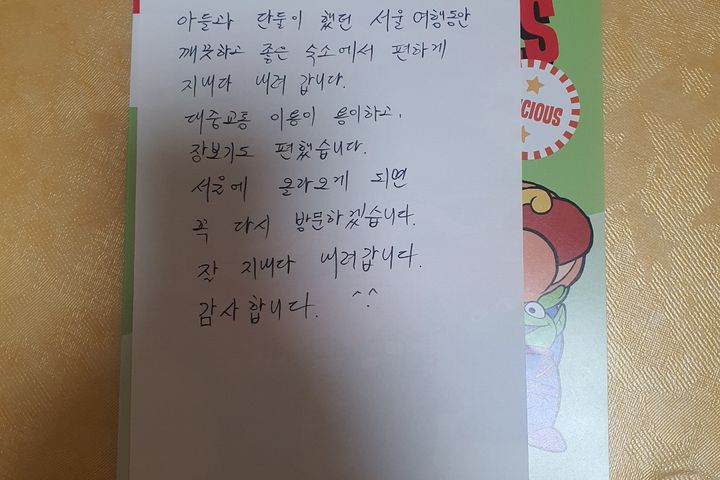 아들과 단둘이 했던 서울여행동안
깨끗하고 좋은 숙소에서 편하게
지내다 내려 갑니다.
대중교통 이용이 용이하고,
장보기도 편했습니다.
서울에 올라오게 되면
꼭 다시 방문하겠습니다.
잘 지내다 내려갑니다.
감사합니다. ^.^
S
ICIOUS